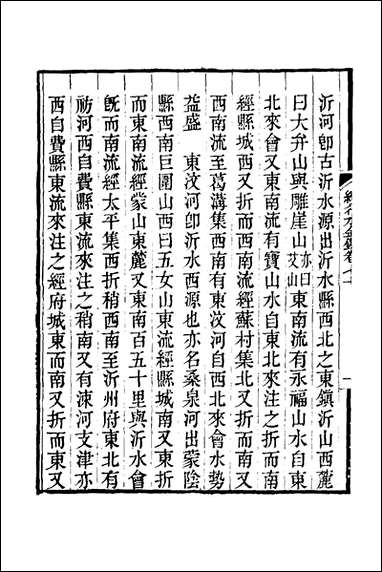 沂河卽古沂水源出沂水縣西北之東鎮沂山西麓
曰大弁山與雕崖山亦曰艾山東南流有永福山水自東
北來會又東南流有寶山水自東北來注之折而南
經縣城西又折而西南流經蘇村集北又折而南
西南流至葛溝集西南有東汶河自西北來會水勢
益盛　東汶河卽沂水西源也亦名桑泉河出蒙陰
縣西南巨圍山西曰五女山東流經縣城南又折
而東南流經蒙山東麓又東南百五十里與沂水會
旣而南流經太平集西折稍西南至沂州府東北有
祊河西自費縣東流來注之稍南又有涑河支津亦
西自費縣東流來注之經府城東而南又折而東又